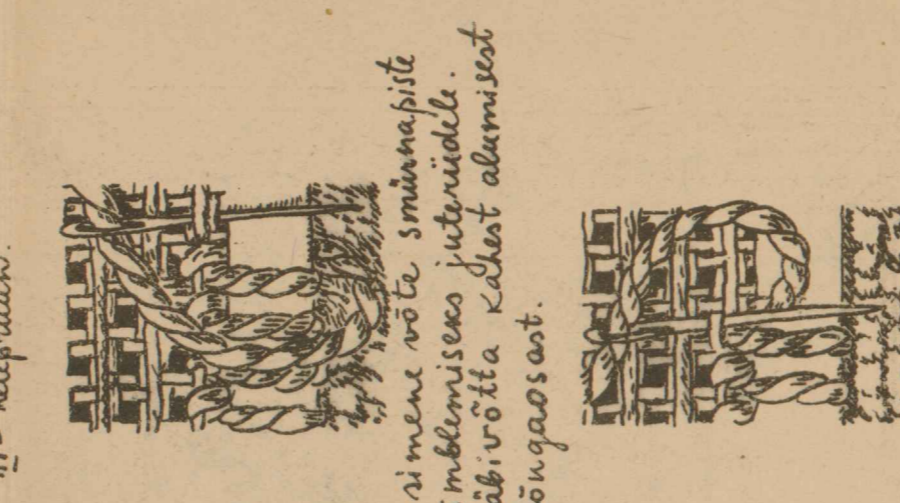 simene võte smürnapiste
mblemiseks juteriidele.
äbivõtta kahest alumisest
õngaosast.